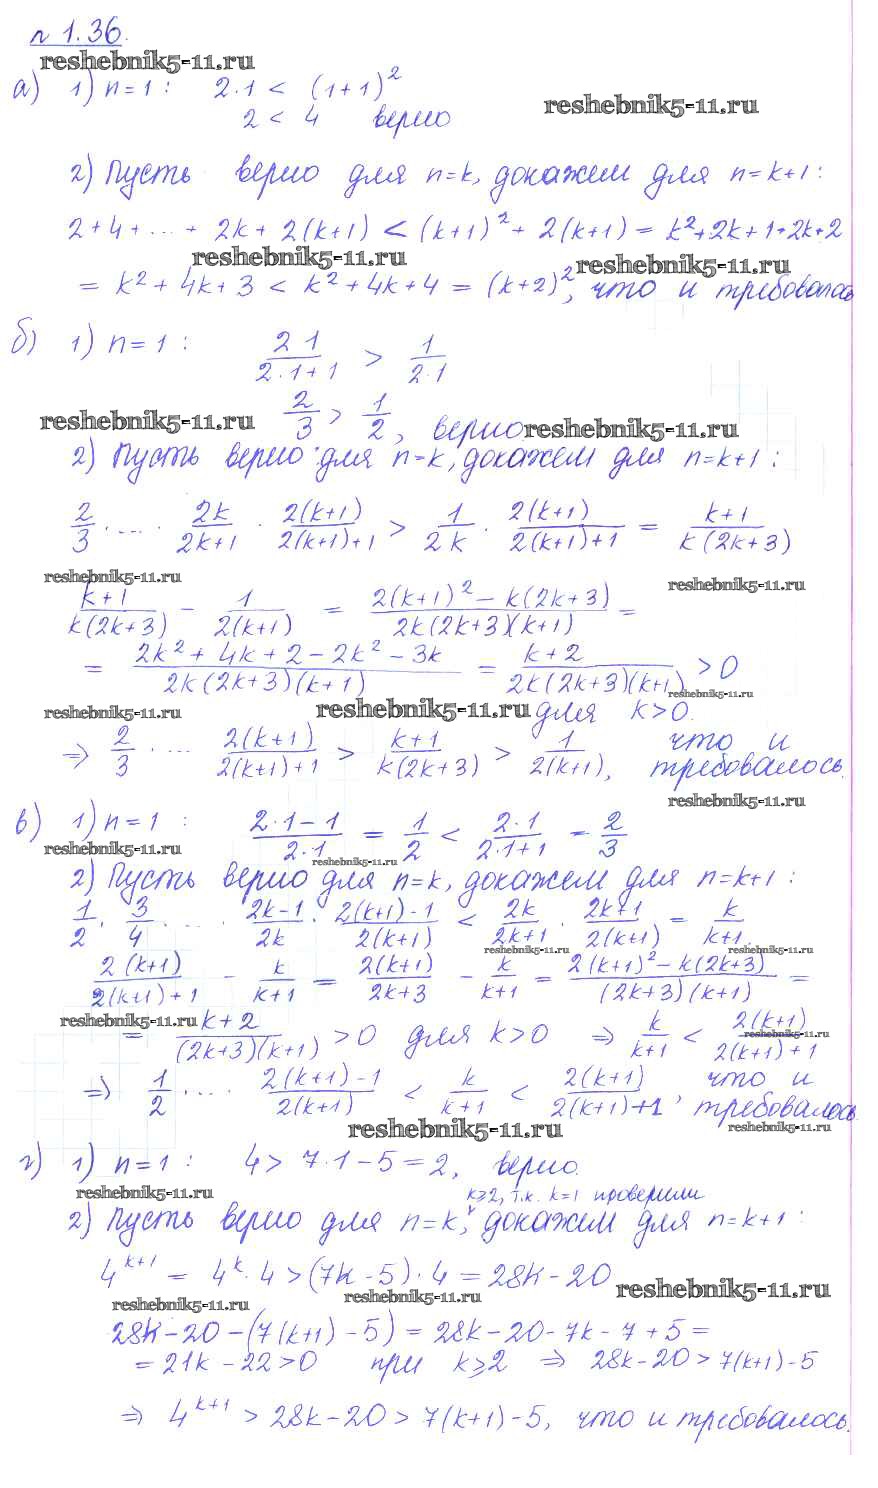 n 1.36.
reshebnik5-11.ru
а) 1) n=1 : 2·1 < (1+1)²
reshebnik5-11.ru
2 < 4 верно
2) Пусть верно для n=k, докажем для n=k+1 :
2+4+ ... + 2k + 2(k+1) < (k+1)² + 2(k+1) = k²+2k+1+2k+2
reshebnik5-11.ru
reshebnik5-11.ru
= k² + 4k + 3 < k² + 4k + 4 = (k+2)², что и требовалось
б) 1) n=1 : 2 1 / (2·1+1) > 1 / (2·1)
reshebnik5-11.ru 2/3 > 1/2, верно reshebnik5-11.ru
2) Пусть верно для n=k, докажем для n=k+1 :
2/3 · ... · 2k/(2k+1) · 2(k+1)/(2(k+1)+1) > 1/(2k) · 2(k+1)/(2(k+1)+1) = (k+1)/(k(2k+3))
reshebnik5-11.ru reshebnik5-11.ru
(k+1)/(k(2k+3)) − 1/(2(k+1)) = (2(k+1)² − k(2k+3))/(2k(2k+3)(k+1)) =
= (2k² + 4k + 2 − 2k² − 3k)/(2k(2k+3)(k+1)) = (k+2)/(2k(2k+3)(k+1)) > 0
reshebnik5-11.ru
reshebnik5-11.ru reshebnik5-11.ru для k>0.
⇒ 2/3 · ... 2(k+1)/(2(k+1)+1) > (k+1)/(k(2k+3)) > 1/(2(k+1)), что и
требовалось.
reshebnik5-11.ru
в) 1) n=1 : (2·1−1)/(2·1) = 1/2 < 2·1/(2·1+1) = 2/3
reshebnik5-11.ru reshebnik5-11.ru
2) Пусть верно для n=k, докажем для n=k+1 :
1/2 · 3/4 · ... · (2k−1)/(2k) · (2(k+1)−1)/(2(k+1)) < 2k/(2k+1) · (2k+1)/(2(k+1)) = k/(k+1).
reshebnik5-11.ru reshebnik5-11.ru
2(k+1)/(2(k+1)+1) − k/(k+1) = 2(k+1)/(2k+3) − k/(k+1) = (2(k+1)² − k(2k+3))/((2k+3)(k+1)) =
reshebnik5-11.ru
= (k+2)/((2k+3)(k+1)) > 0 для k>0 ⇒ k/(k+1) < 2(k+1)/(2(k+1)+1)
reshebnik5-11.ru
⇒ 1/2 · ... (2(k+1)−1)/(2(k+1)) < k/(k+1) < 2(k+1)/(2(k+1)+1), что и
требовалось.
reshebnik5-11.ru reshebnik5-11.ru
г) 1) n=1 : 4 > 7·1−5 = 2, верно.
reshebnik5-11.ru
k≥2, т.к. k=1 проверили
2) Пусть верно для n=k, докажем для n=k+1 :
4^(k+1) = 4^k · 4 > (7k−5)·4 = 28k−20
reshebnik5-11.ru
reshebnik5-11.ru reshebnik5-11.ru
28k−20−(7(k+1)−5) = 28k−20−7k−7+5 =
= 21k − 22 > 0 при k≥2 ⇒ 28k−20 > 7(k+1)−5
⇒ 4^(k+1) > 28k−20 > 7(k+1)−5, что и требовалось.